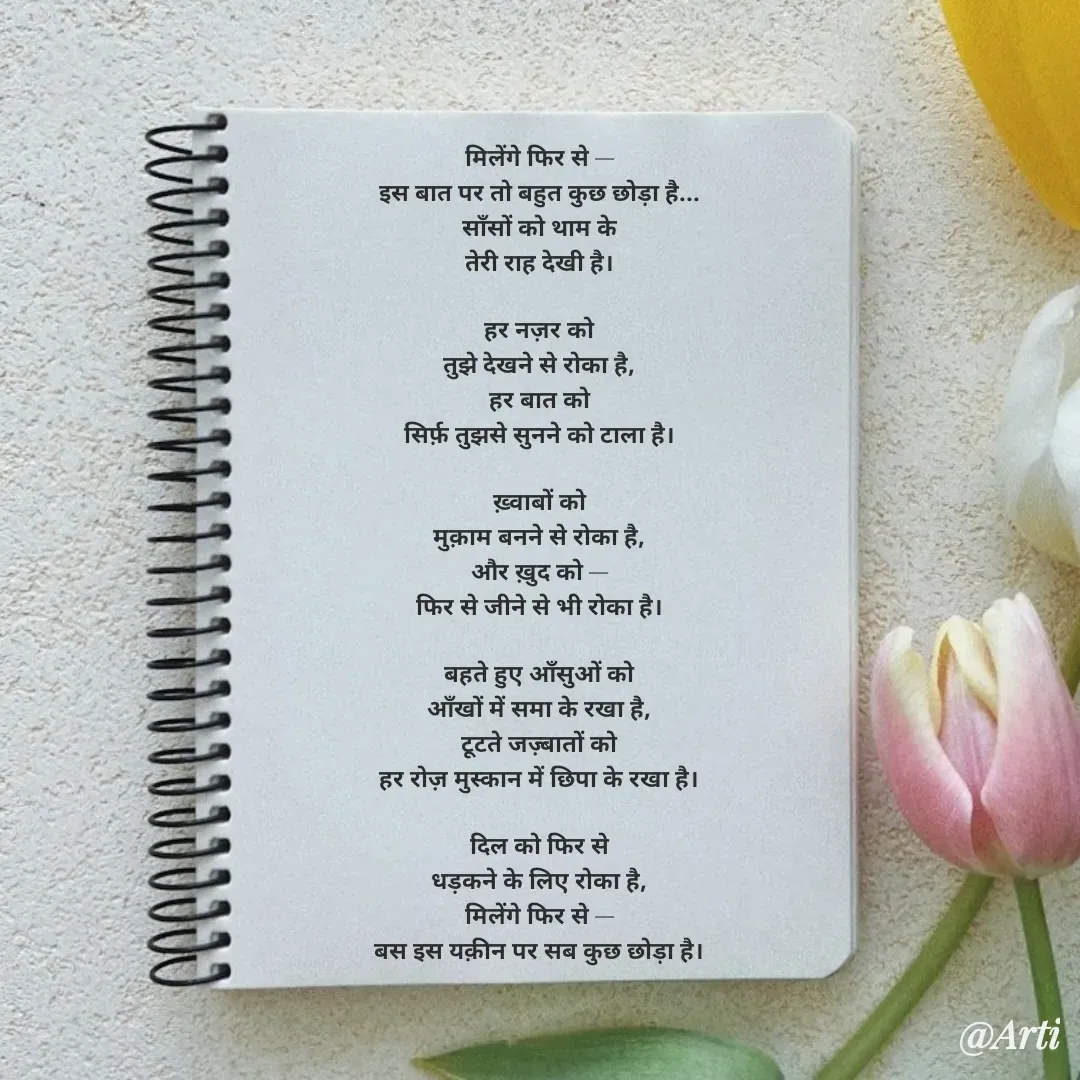 मिलेंगे फिर से —
इस बात पर तो बहुत कुछ छोड़ा है...
साँसों को थाम के
तेरी राह देखी है।
हर नज़र को
तुझे देखने से रोका है,
हर बात को
सिर्फ़ तुझसे सुनने को टाला है।
ख़्वाबों को
मुक़ाम बनने से रोका है,
और ख़ुद को —
फिर से जीने से भी रोका है।
बहते हुए आँसुओं को
आँखों में समा के रखा है,
टूटते जज़्बातों को
हर रोज़ मुस्कान में छिपा के रखा है।
दिल को फिर से
धड़कने के लिए रोका है,
मिलेंगे फिर से —
बस इस यक़ीन पर सब कुछ छोड़ा है।
@Arti